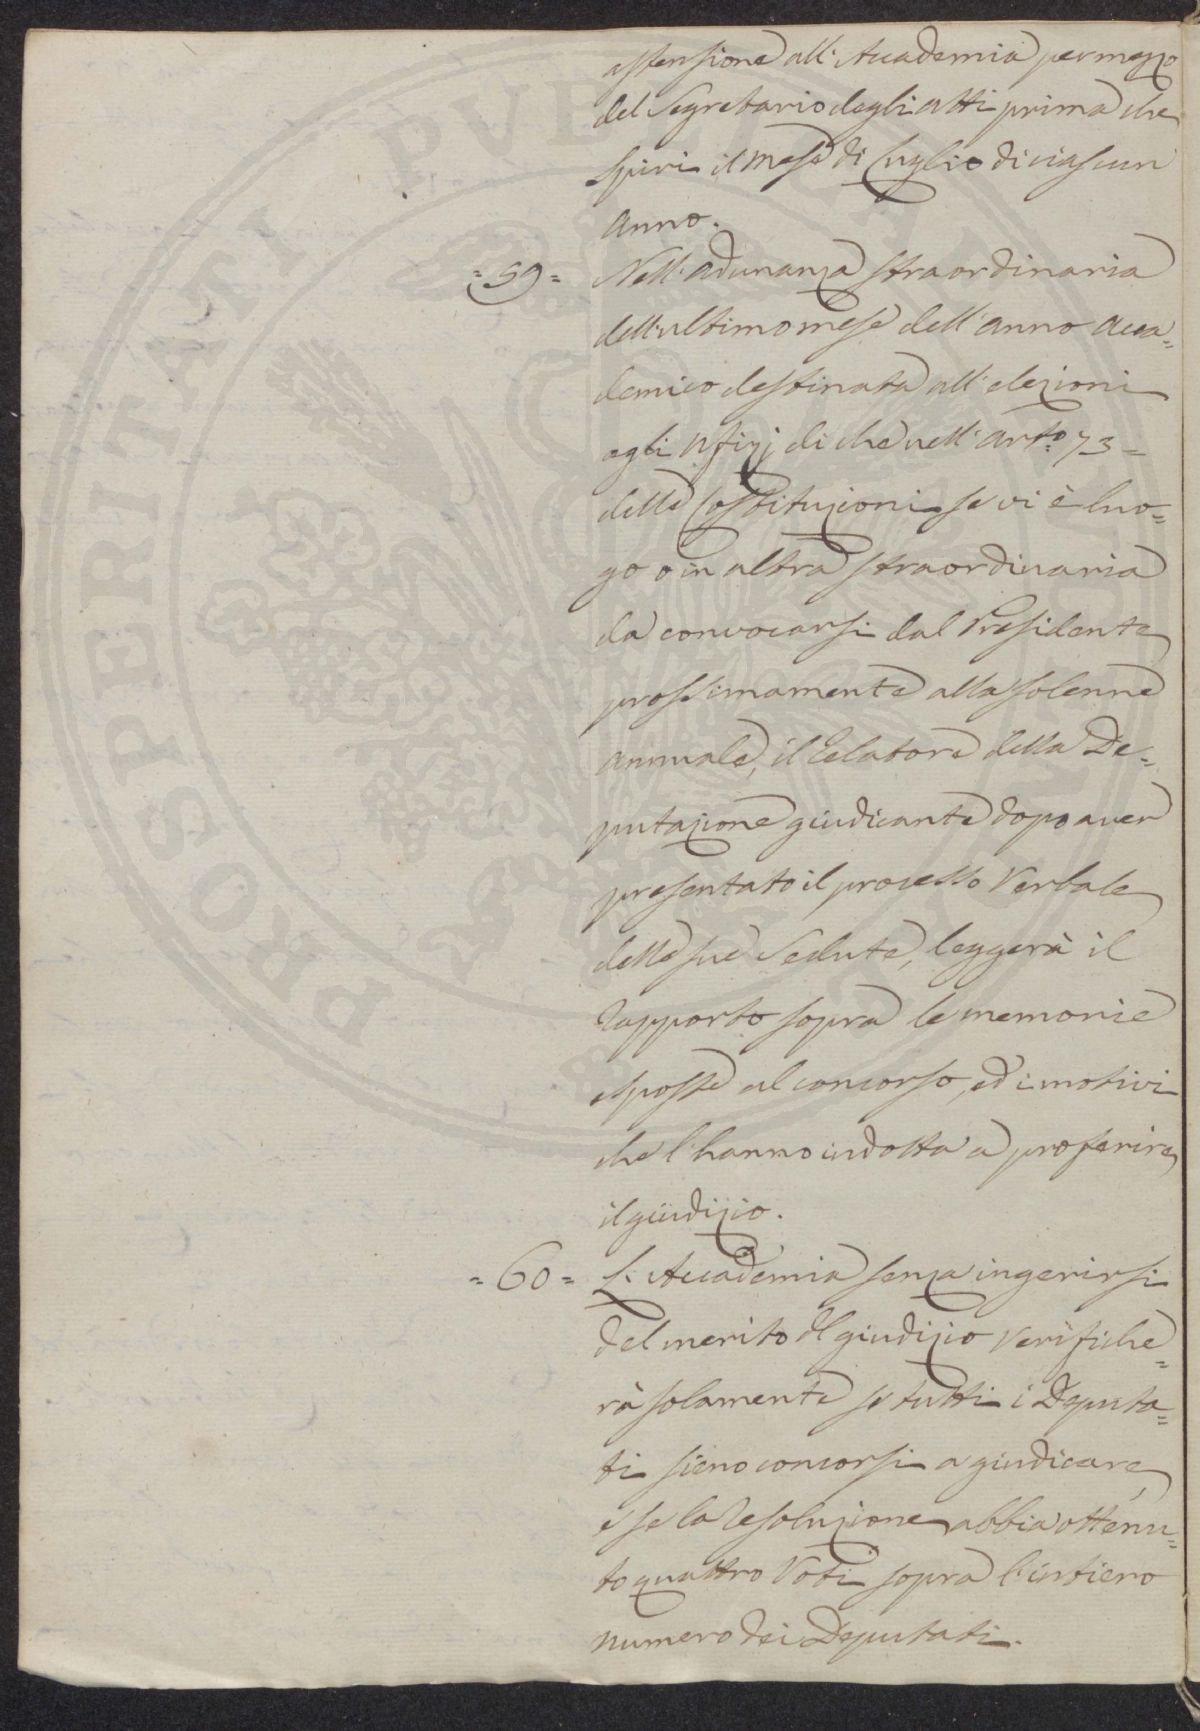 astensione all'Accademia per mezzo
del Segretario degli atti prima che
spiri il mese di Luglio di ciascun
anno.
=59= Nell'adunanza straordinaria
dell'ultimo mese dell'anno Acca=
demico destinata all'elezioni
agli Ufizj di che nell'Arto. 73=
delle Costituzioni se vi è luo=
go o in altra straordinaria
da convocarsi dal Presidente
prossimamente alla solenne
annuale, il Relatore della De=
putazione giudicante dopo aver
presentato il processo Verbale
delle sue Sedute, leggerà il
rapporto sopra le memorie
esposte al concorso, ed i motivi
che l'hanno indotta a proferire
il giudizio.
=60= L'Accademia senza ingerirsi
del merito del giudizio verifiche=
rà solamente se tutti i Deputa=
ti sieno concorsi a giudicare,
e se la resoluzione abbia ottenu=
to quattro Voti sopra l'intiero
numero dei Deputati.
PROSPERITATI PVBLICAE